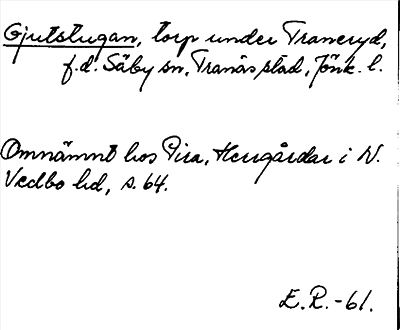 Gjutstugan, torp under Traneryd,
f.d. Säby sn, Tranås stad, Jönk. l.
Omnämnt hos Pira, Herrgårdar i N.
Vedbo hd, s. 64.
E.R.-61.